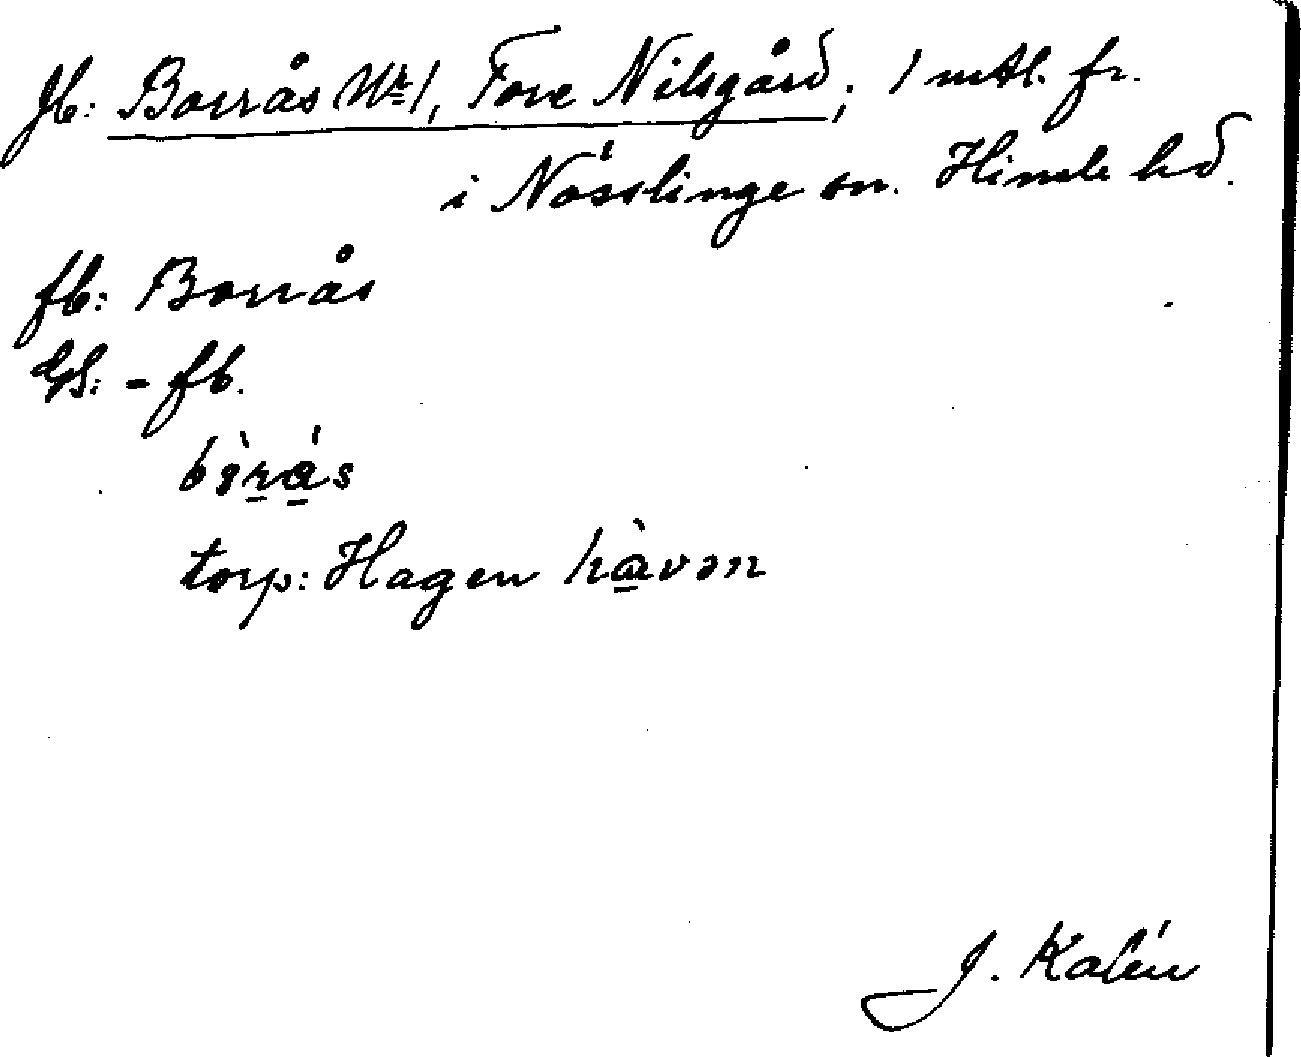 Jb: Borrås Nr 1, Tore Nilsgård; 1 mtl. fr.
i Nösslinge sn. Himle hd.
fb: Borrås
GS: - fb.
torp: Hagen hàvən
J. Kalén